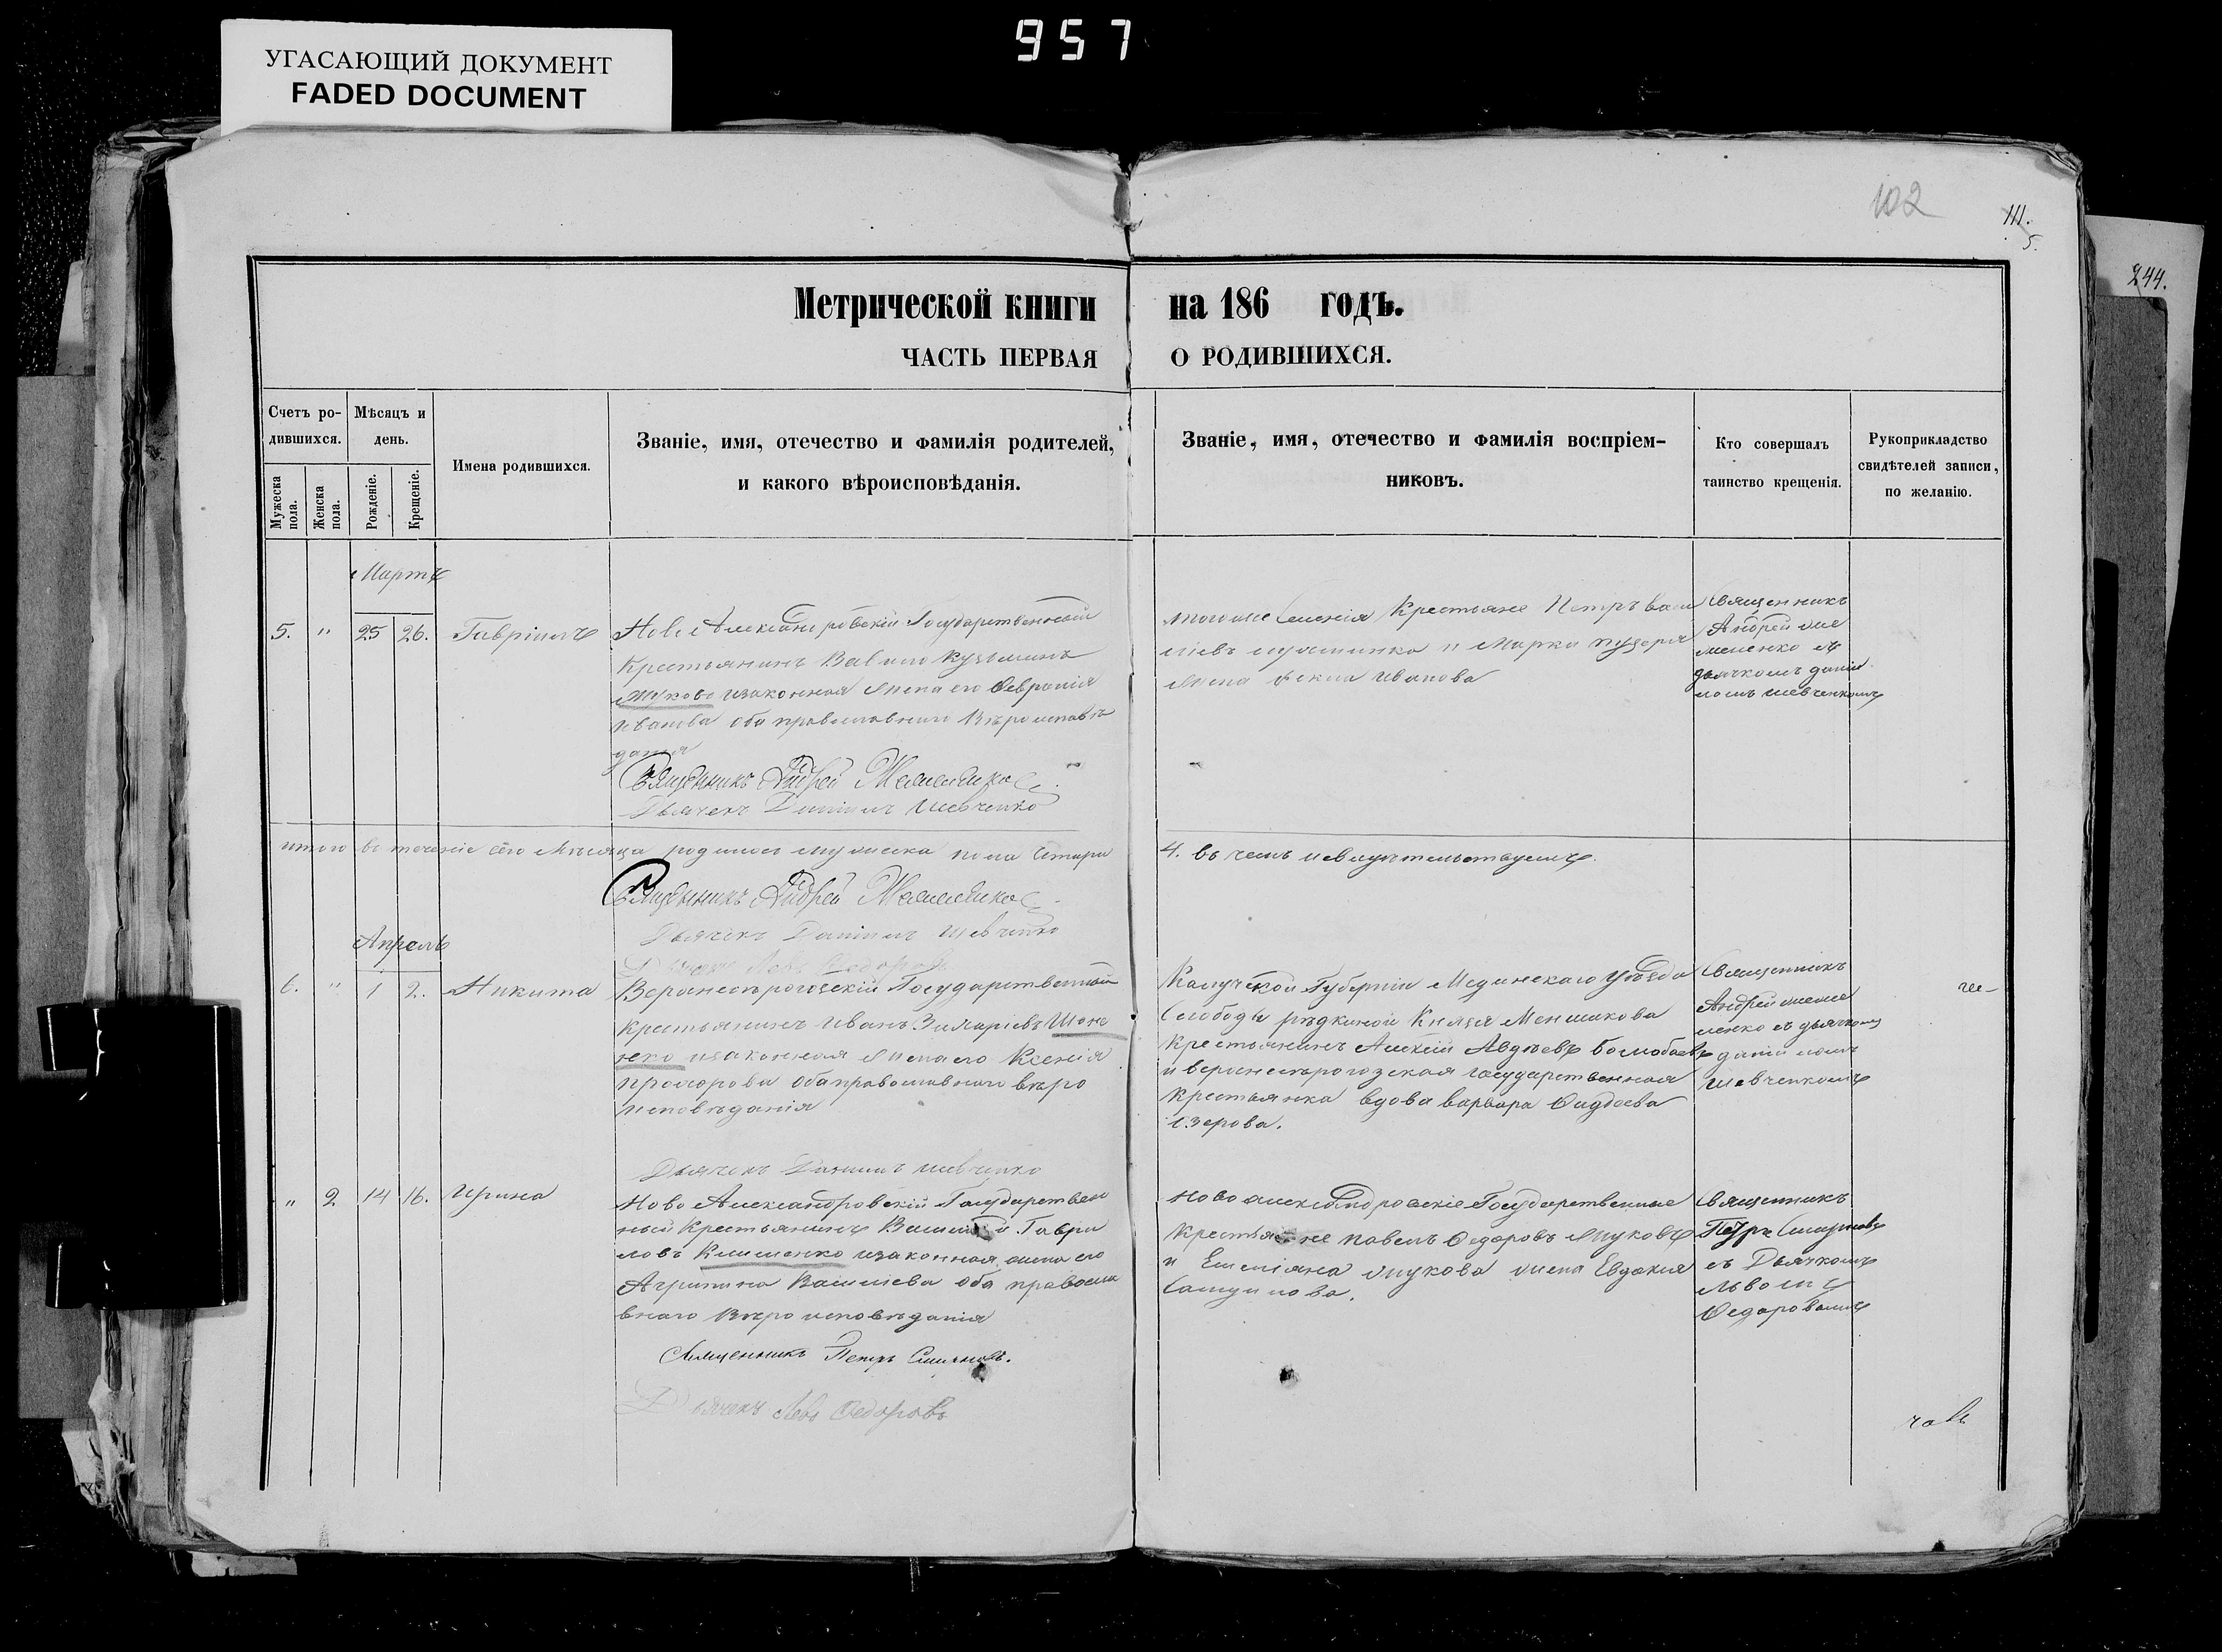 957
УГАСАЮЩИЙ ДОКУМЕНТ
FADED DOCUMENT
102
111.
5.
244.
Метрической книги на 186 годъ.
ЧАСТЬ ПЕРВАЯ О РОДИВШИХСЯ.
Счетъ ро-
дившихся.
Мужеска пола.
Женска пола.
Мѣсяцъ и
день.
Рожденіе.
Крещеніе.
Имена родившихся.
Званіе, имя, отечество и фамилія родителей,
и какого вѣроисповѣданія.
Званіе, имя, отечество и фамилія воспріем-
никовъ.
Кто совершалъ
таинство крещенія.
Рукоприкладство
свидѣтелей записи,
по желанію.
Мартъ
5. " 25 26. Гавріилъ
Ново Александровскій Государственный
крестьянинъ Кузьминъ
изаконная жена его Февронія
Иванова оба православнаго Вѣроисповѣ
данія
Священникъ Андрей
Дьячекъ Даніилъ Шевченко
тогоже Селенія Крестьяне Петръ Васи
ліевъ и Марка
жена Иванова
Священникъ
Андрей
съ
дьячкомъ Даніи
ломъ Шевченкомъ
итого въ теченіе сего Мѣсяца родилось мужеска пола Четыри
4. въ чемъ исвидѣтельствуемъ.
Священникъ Андрей
Дьячекъ Даніилъ Шевченко
Дьячекъ Левъ Федоровъ
Апрель
6. " 1 2. Никита
Верхнесѣрогозскій Государственный
крестьянинъ Иванъ
изаконная жена его Ксенія
прохорова оба православнаго вѣро
исповѣданія
Дьячекъ Даніилъ Шевченко
Калужской Губерніи Медынскаго Уѣзда
Слободы рѣдкиной Князя Меншикова
крестьянинъ Алексій Авдѣевъ
и верхнесѣрогозская государственная
крестьянка вдова варвара
Озерова.
Священникъ
Андрей
съ дьячкомъ
Даніиломъ
Шевченкомъ
" 2 14 16. Ирина
Ново Александровскій Государствен
ный Крестьянинъ Василій Гаври
ловъ Клименко изаконная жена его
Агрипина Васильева оба правосла
внаго Вѣроисповѣданія
Священникъ Петръ Смирновъ.
Дьячекъ Левъ Федоровъ
Ново александровскіе Государственные
Крестьяне павелъ Федоровъ Жуковъ
и Емеліяна жукова жена Евдокія
Самуилова.
Священникъ
Петръ Смирновъ
съ Дьячкомъ
Львомъ
Федоровымъ